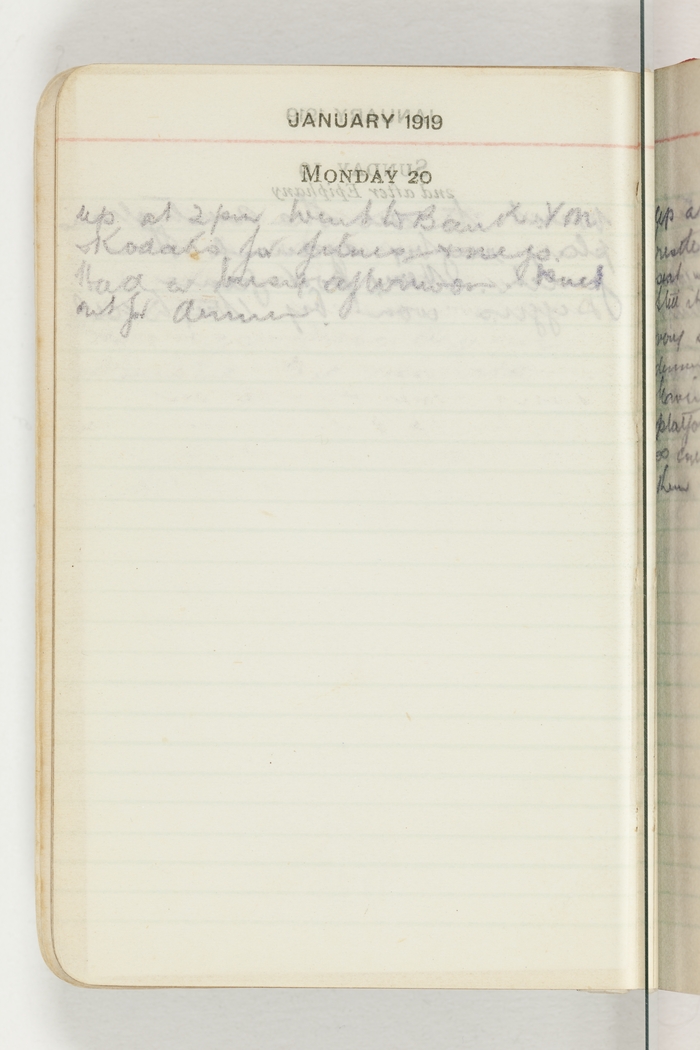 JANUARY 1919
MONDAY 20
up at 2 pm Went to Bank &
Kodaks for films & negs.
Had a busy afternoon. Went
out for dinner.
up a